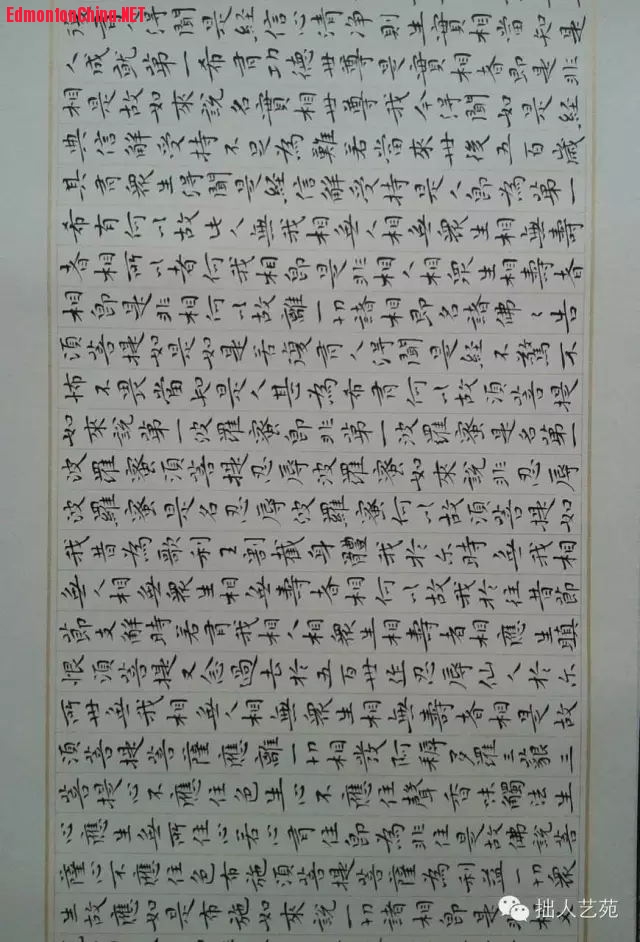 EdmontonChina.NET
得聞是經信心清淨則生實相當知是
人成就第一希有功德世尊是實相者即是非
相是故如來說名實相世尊我今得聞如是經
典信解受持不足為難若當來世後五百歲
其有眾生得聞是經信解受持是人即為第一
希有何以故此人無我相無人相無眾生相無壽
者相所以者何我相即是非相人相眾生相壽者
相即是非相何以故離一切諸相即名諸佛〻告
須菩提如是如是若復有人得聞是經不驚不
怖不畏當知是人甚為希有何以故須菩提
如來說第一波羅蜜即非第一波羅蜜是名第一
波羅蜜須菩提忍辱波羅蜜如來說非忍辱
波羅蜜是名忍辱波羅蜜何以故須菩提如
我昔為歌利王割截身體我於尒時無我相
無人相無眾生相無壽者相何以故我於往昔節
節支解時若有我相人相眾生相壽者相應生瞋
恨須菩提又念過去於五百世作忍辱仙人於尒
所世無我相無人相無眾生相無壽者相是故
須菩提菩薩應離一切相發阿耨多羅三藐三
菩提心不應住色生心不應住聲香味觸法生
心應生無所住心若心有住即為非住是故佛說菩
薩心不應住色布施須菩提菩薩為利益一切眾
生故應如是布施如來說一切諸相即是
拙人艺苑